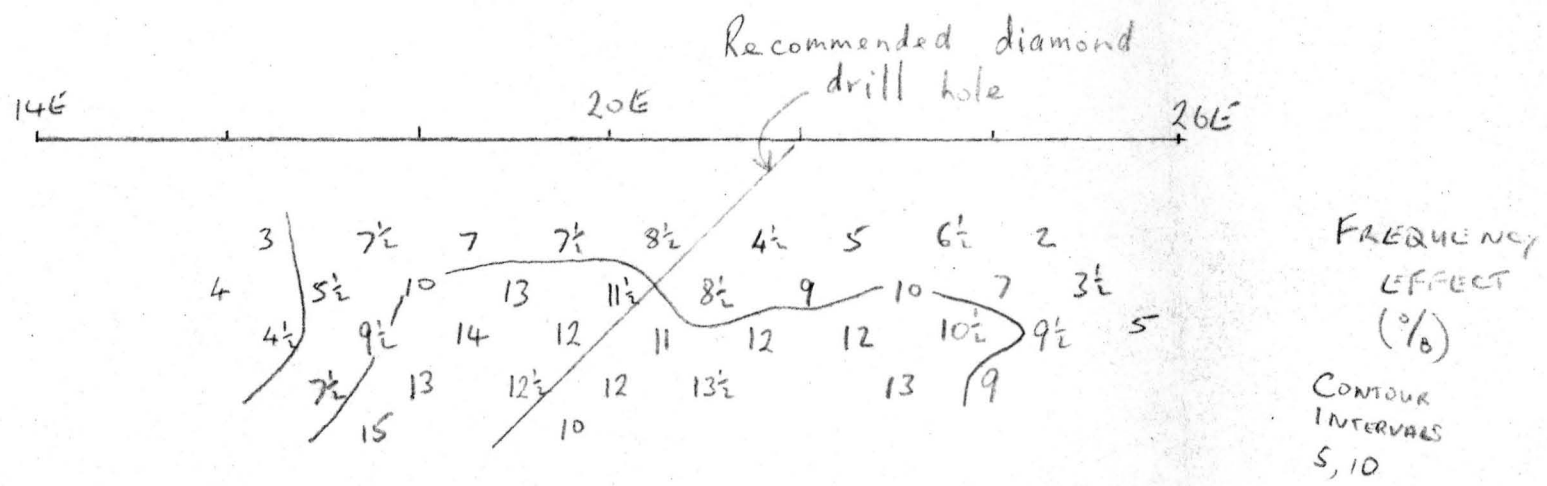 Recommended diamond
drill hole
14E 20E 26E
3 7½ 7 7½ 8½ 4½ 5 6½ 2
4 5½ 10 13 11½ 8½ 9 10 7 3½
4½ 9½ 14 12 11 12 12 10½ 9½ 5
7½ 13 12½ 12 13½ 13 9
15 10
FREQUENCY
EFFECT
(%)
CONTOUR
INTERVALS
5, 10